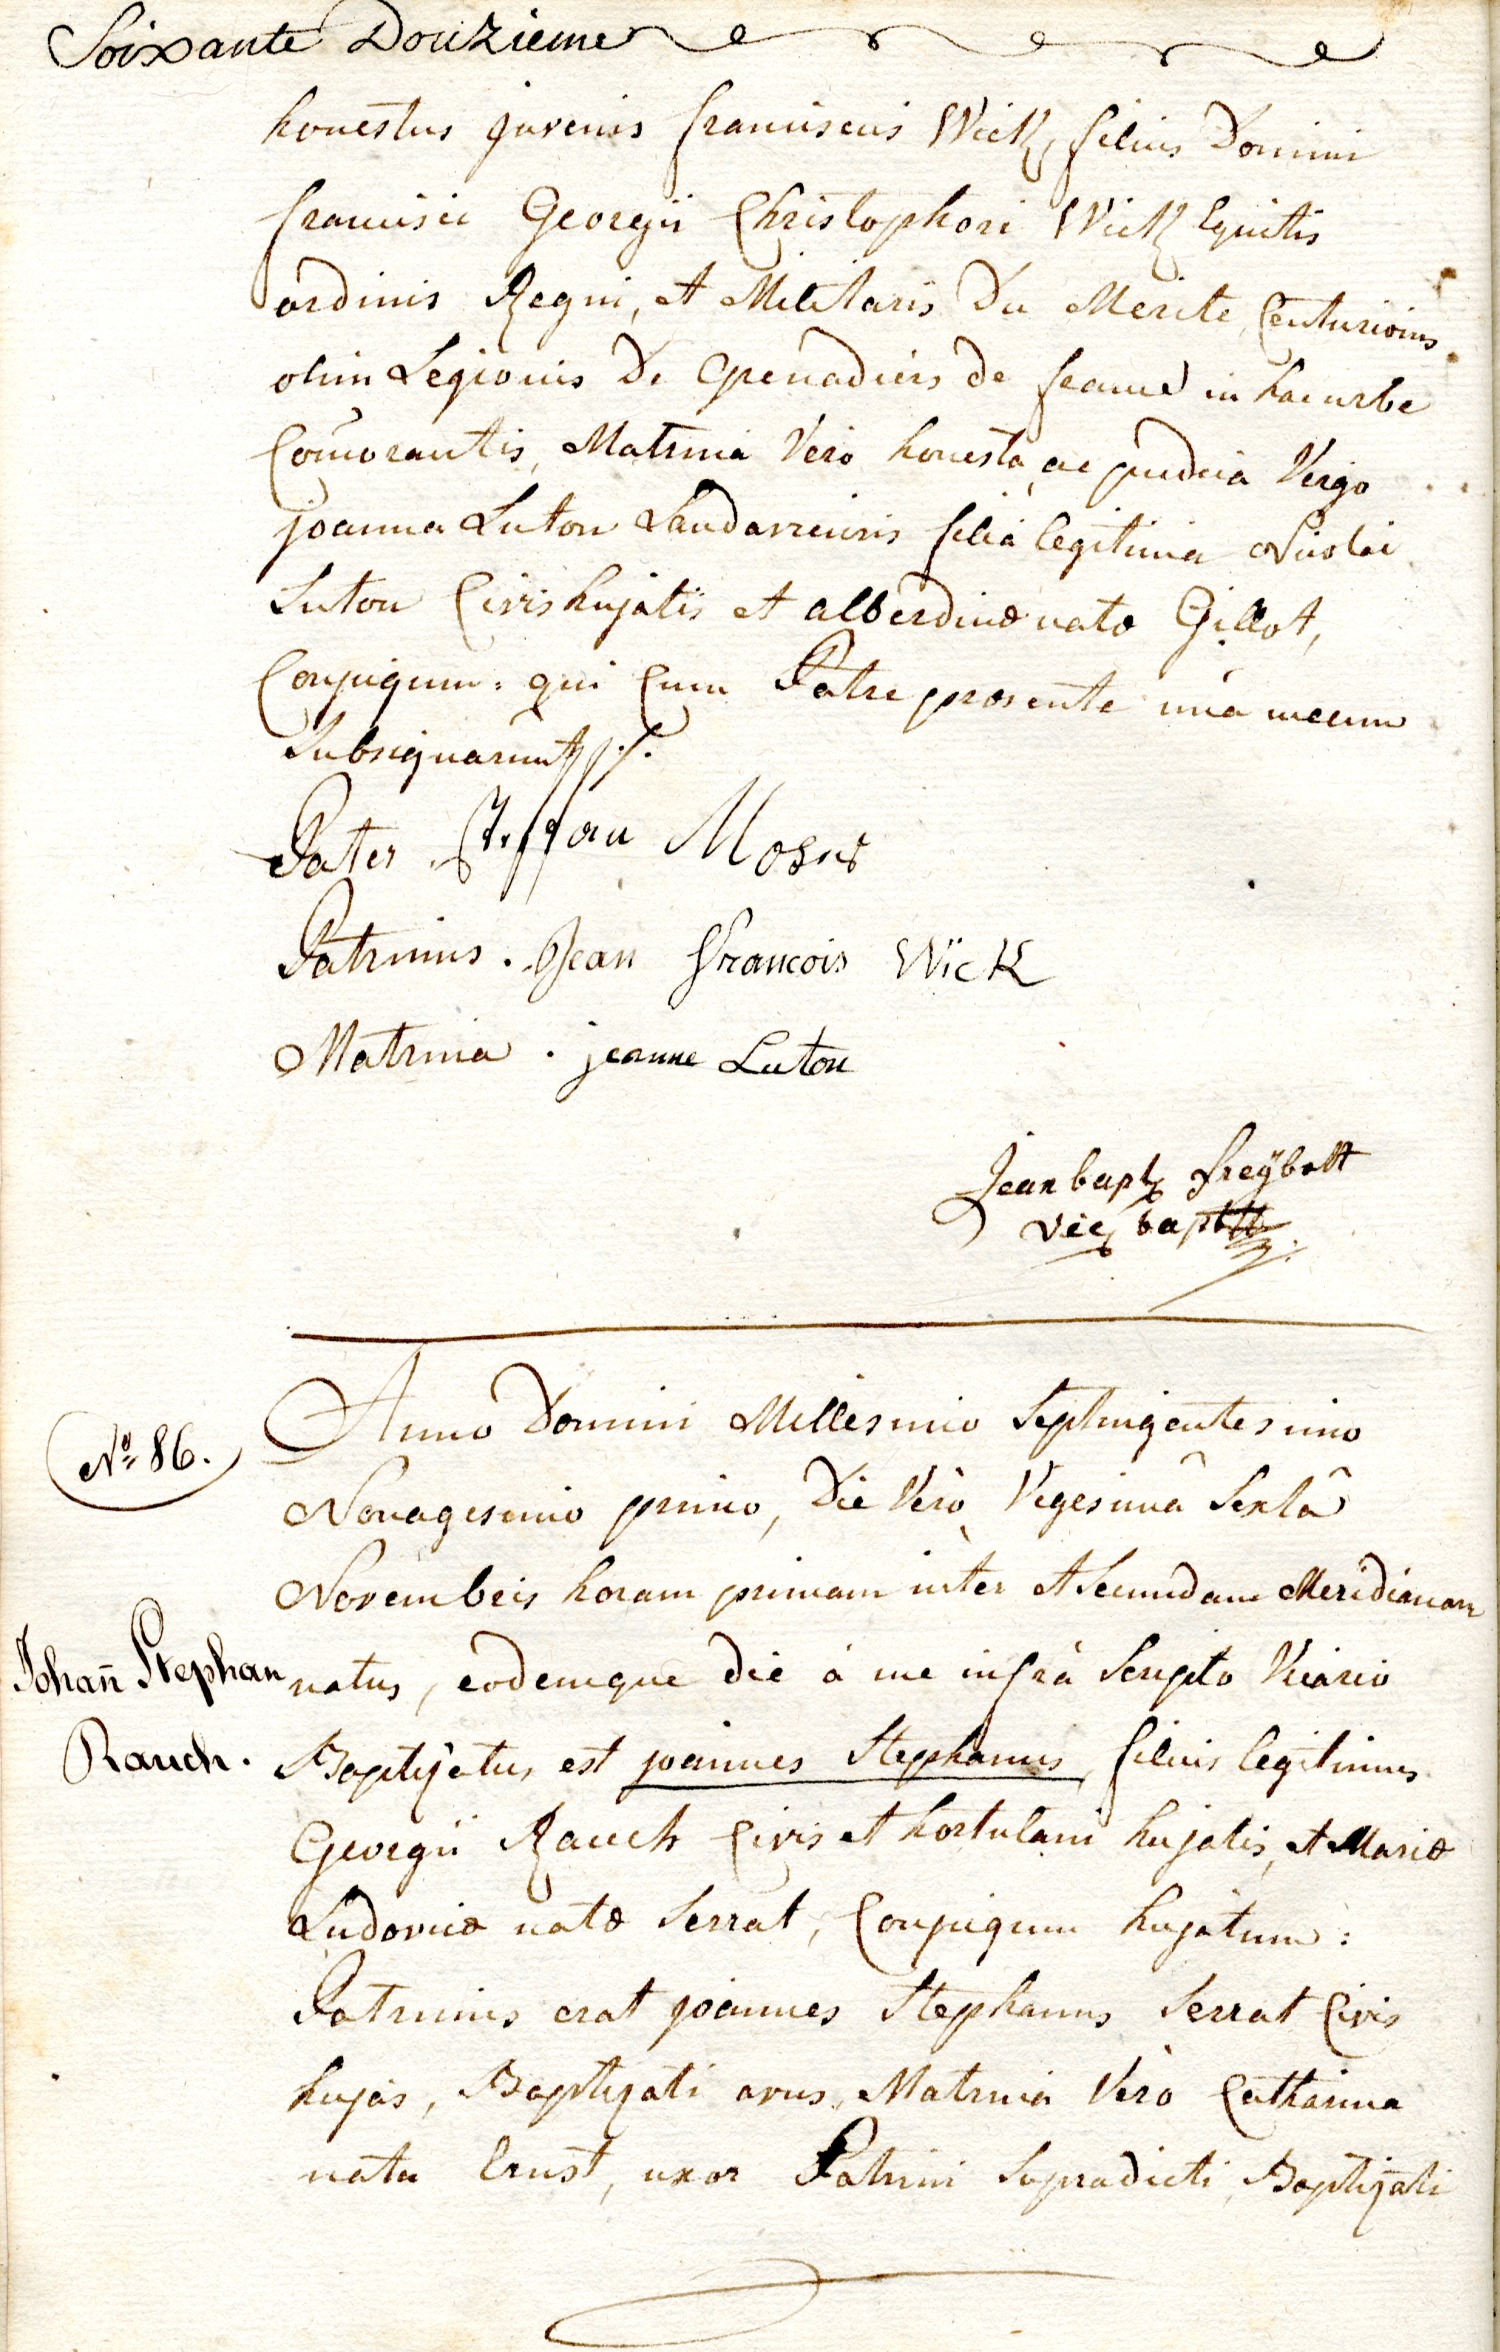 Soixante Douzieme
honestus juvenis franciscus Wick, filius Domini
francisci Georgii Christophori Wick Equitis
ordinis Regni, et Militaris Du Merite Centurionis
olim Legionis De Grenadiers de france in hac urbe
Com̄orantis, Matrina Vero honesta ac pudica Virgo
joanna Luton Landaviensis filia legitima Nicolai
Luton Civis hujatis et alberdinæ natæ Gillot,
Conjugum: qui Cum Patre præsente unà mecum
Subsignarunt ./.
Pater Steffan Moser
Patrinus . Jean francois Wick
Matrina . jeanne Luton
Jean bapt freÿbott
vic bapt
Anno Domini Millesimo Septingentesimo
Nº 86.
Nonagesimo primo, Die Verò Vigesimâ Sextâ
Novembris horam primam inter et Secundam Meridianam
Johan̄ Stephan
natus, eodemque die à me infrà Scripto Vicario
Rauch.
Baptizatus est joannes Stephanus, filius legitimus
Georgii Rauch Civis et hortulani hujatis, et Mariæ
Ludovicæ natæ Serrat, Conjugum hujatum:
Patrinus erat joannes Stephanus Serrat Civis
hujas, Baptizati avus, Matrina Verò Catharina
nata Ernst, uxor Patrini Supradicti, Baptizati